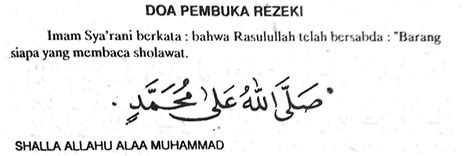 DOA PEMBUKA REZEKI
Imam Sya'rani berkata : bahwa Rasulullah telah bersabda : "Barang
siapa yang membaca sholawat.
صَلَّى اللهُ عَلَى مُحَمَّدٍ .
SHALLA ALLAHU ALAA MUHAMMAD